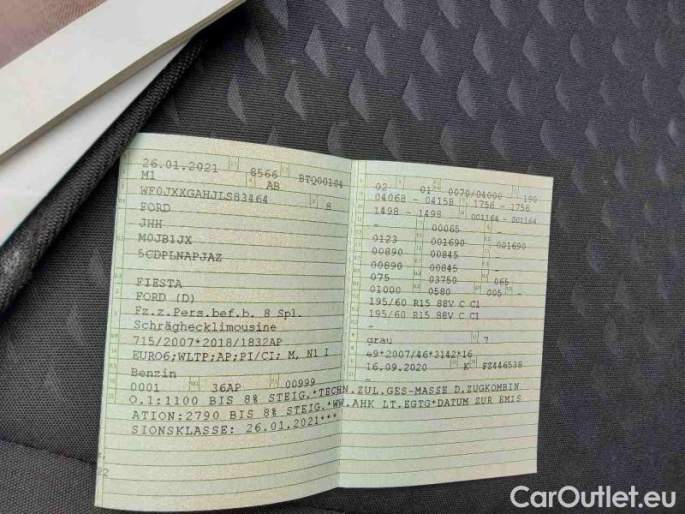 26.01.2021 8566 BTQ00104
M1 AB
WF0JXXGAHJLS83464 8
FORD
JHH
M0JB1JX
5CDPLNAPJAZ
FIESTA
FORD (D)
Fz.z.Pers.bef.b. 8 Spl.
Schräghecklimousine
715/2007*2018/1832AP
EURO6;WLTP;AP;PI/CI; M, N1 I
Benzin
0001 36AP 00999
O.1:1100 BIS 8% STEIG.*TECHN.ZUL.GES-MASSE D.ZUGKOMBIN
ATION:2790 BIS 8% STEIG.*WW.AHK LT.EGTG*DATUM ZUR EMIS
SIONSKLASSE: 26.01.2021***
02 01 0070/04000 190
04068 - 04158 1756 - 1756
1498 - 1498 001164 - 001164
- 00065 -
0123 001690 001690
00890 00845
00890 00845
075 03750 065
01000 0580 005
195/60 R15 88V C C1
195/60 R15 88V C C1
-
grau 7
e9*2007/46*3142*16
16.09.2020 K FZ446538
-
22
CarOutlet.eu